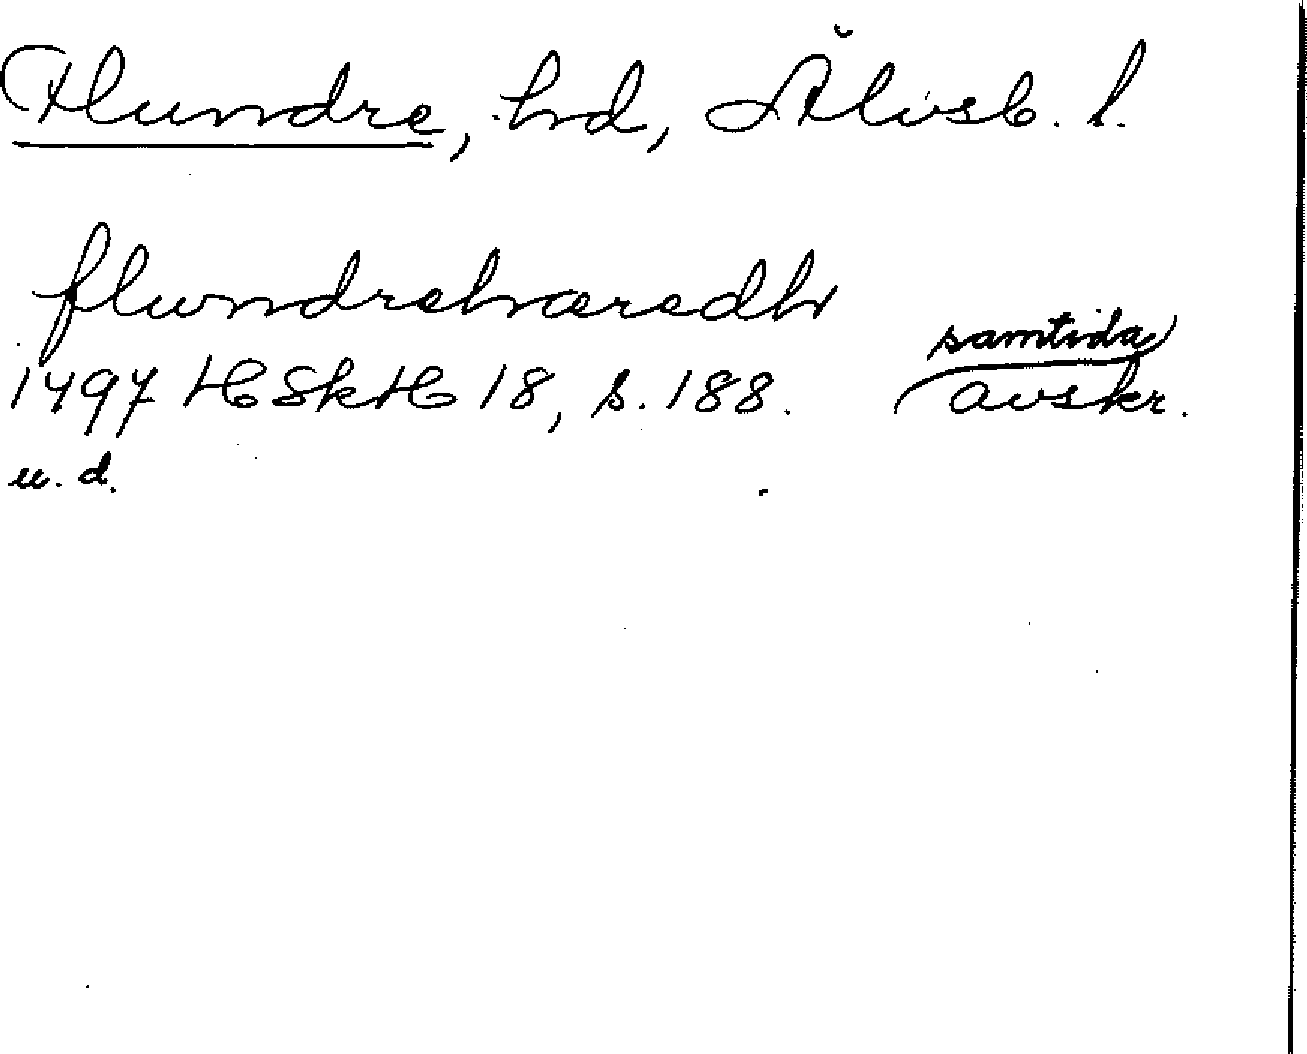 Flundre, hd, Älvsb. l.
flundrehæredh
1497 HSkH 18, s. 188. samtida avskr.
u. d.